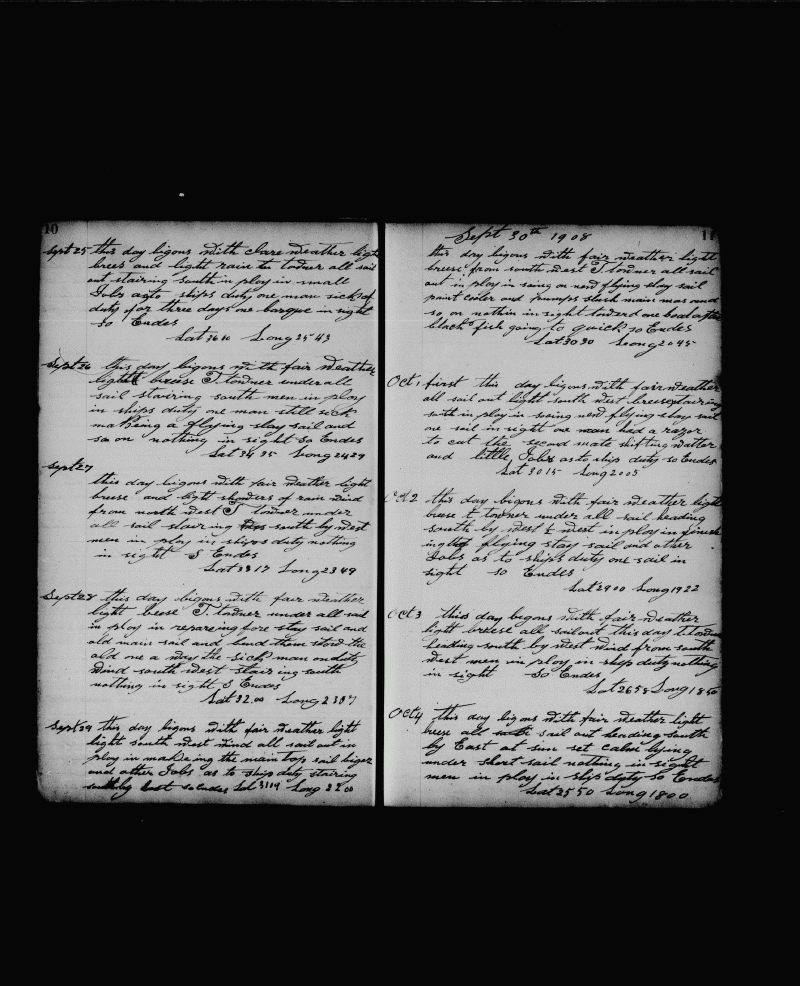 10
Sept 25 this day bigons with Clare weather light
brees and light rain the towner all sail
out stairing south in ploy in small
Jobs asto ships duty one man sick of
duty for three days one barque in sight
so Endes
Lat 36 10 Long 25 43
Sept 26 this day bigons with fair weather
light breese T. towner under all
sail stairing south men in ploy
in ships duty one man still sick
making a flying stay sail and
so on nothing in sight so Endes
Lat 34 35 Long 24 29
Sept 27
this day bigons with fair weather light
breese and light showers of rain wind
from north west T towner under
all sail stairing south by west
men in ploy in ships duty nothing
in sight S Endes
Lat 33 17 Long 23 49
Sept 28 this day bigons with fair weather
light breese T. towner under all sail
in ploy in repareing fore stay sail and
old main sail and bend them stord the
old one a way the sick man on duty
wind south west stairing south
nothing in sight S Endes
Lat 32.00 Long 23 07
Sept 29 this day bigons with fair weather light
light south west wind all sail out in
ploy in makeing the main top sail biger
and other Jobs as to ship duty stairing
south by East so Endes Lat 31 19 Long 22 00
11
Sept 30th 1908
this day bigons with fair weather light
breese from south west T towner all sail
out in ploy in soing on new flying stay sail
paint cooler and pumps slush main mas and
so on nothin in sight towerd one boat after
black fish going to quick so Endes
Lat 30 30 Long 20 45
Oct 1 first this day bigons with fair weather
all sail out light south west breese stairing
south in ploy in soing new flying stay sail
one sail in sight one man had a razor
to cut the second mate shifting watter
and little Jobs as to ship duty so Endes
Lat 30 15 Long 20 05
Oct 2 this day bigons with fair weather light
breese t towner under all sail heading
south by west ½ west in ploy in finish
ing the flying stay sail and other
Jobs as to ships duty one sail in
sight so Endes
Lat 29 00 Long 19 22
Oct 3 this day begons with fair weather
light breese all sail out this day T Towner
heading south by west wind from south
west men in ploy in ship duty nothing
in sight so Endes
Lat 26 58 Long 18 50
Oct 4 this day bigons with fair weather light
breese all sail out heading south
by East at sun set calm lying
under short sail nothing in sight
men in ploy in ships duty so Endes
Lat 25 50 Long 18 00